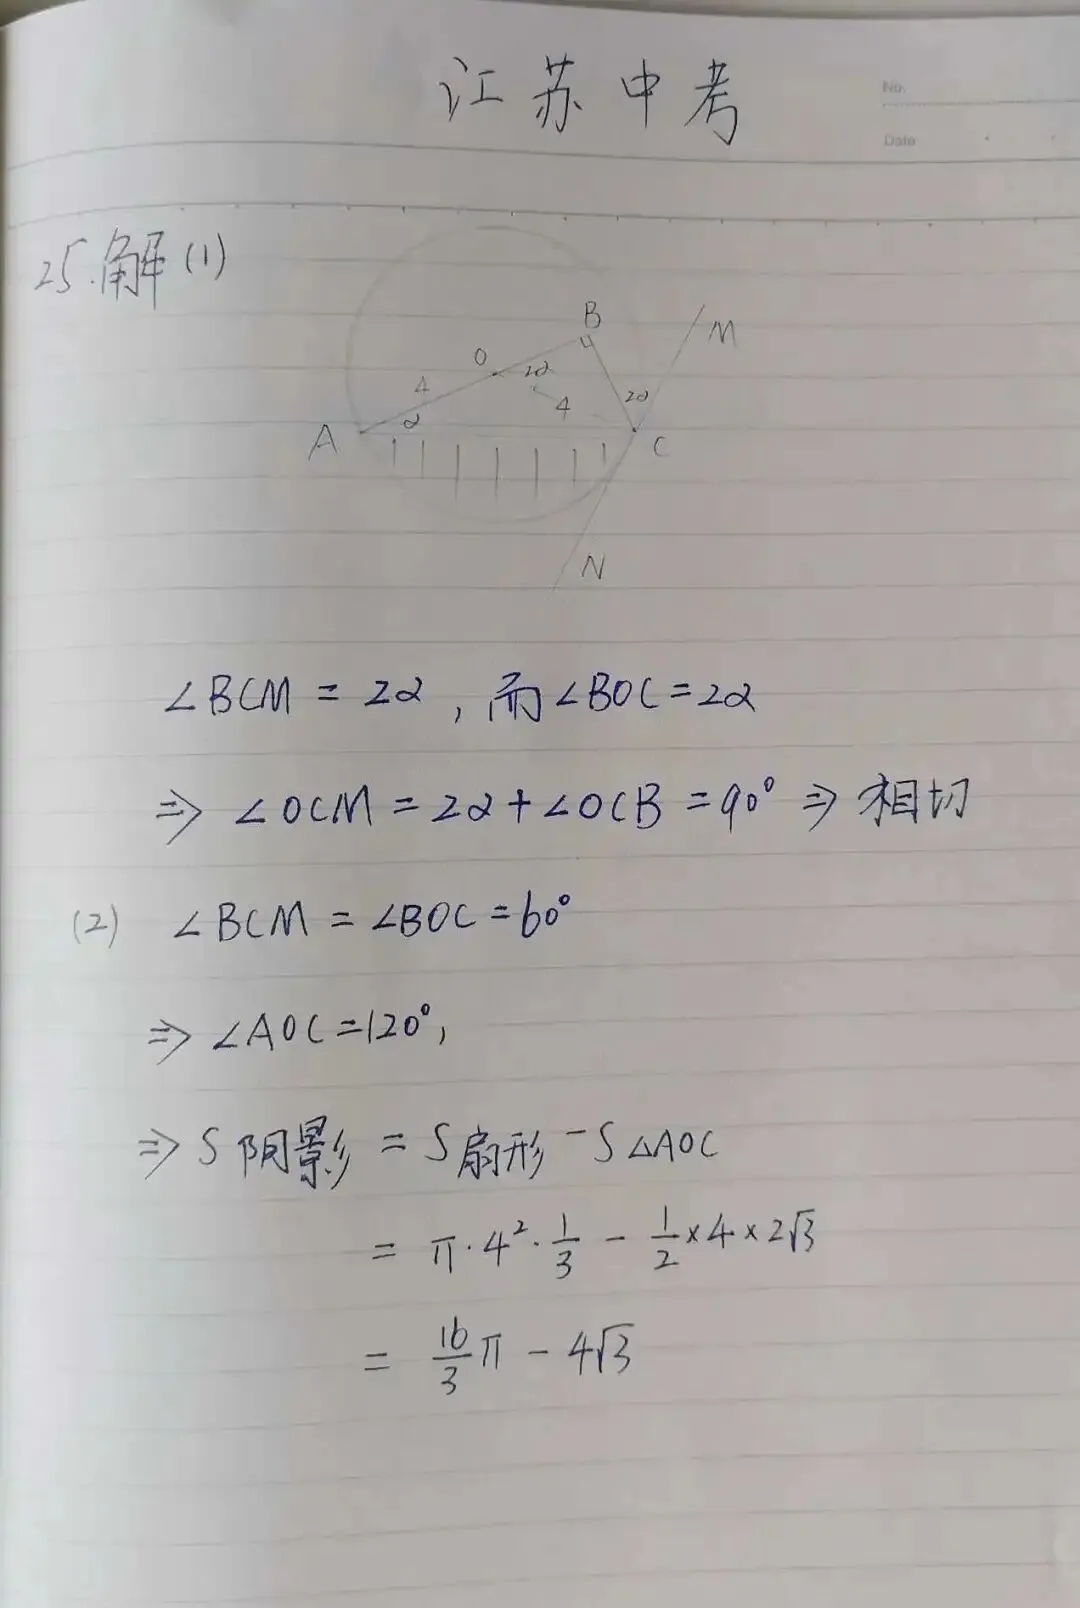 江苏中考
No.
Date
25.解(1)
B
M
O
2α
4
α
4
2α
A
C
N
∠BCM = 2α, 而∠BOC=2α
⇒ ∠OCM = 2α+∠OCB =90° ⇒ 相切
(2) ∠BCM = ∠BOC=60°
⇒ ∠AOC=120°,
⇒ S阴影 = S扇形 - S△AOC
= π·4²·1/3 - 1/2×4×2√3
= 16/3π - 4√3